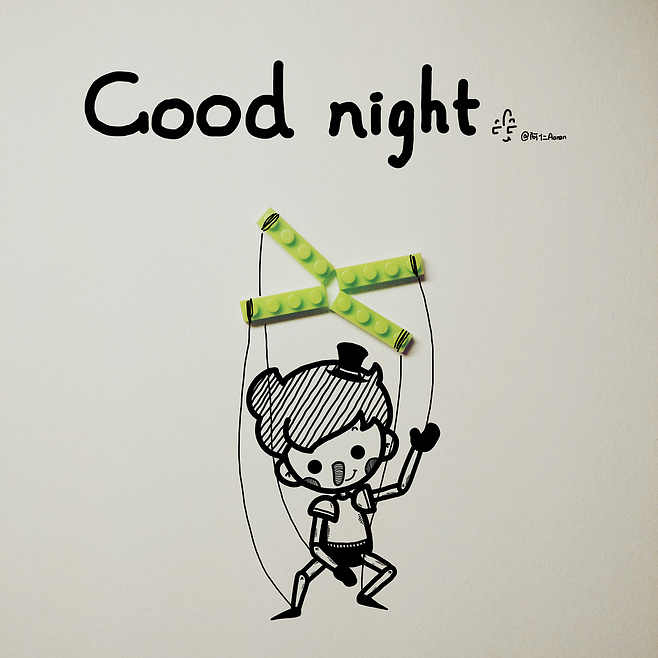 Good night
@阿仁Aaron